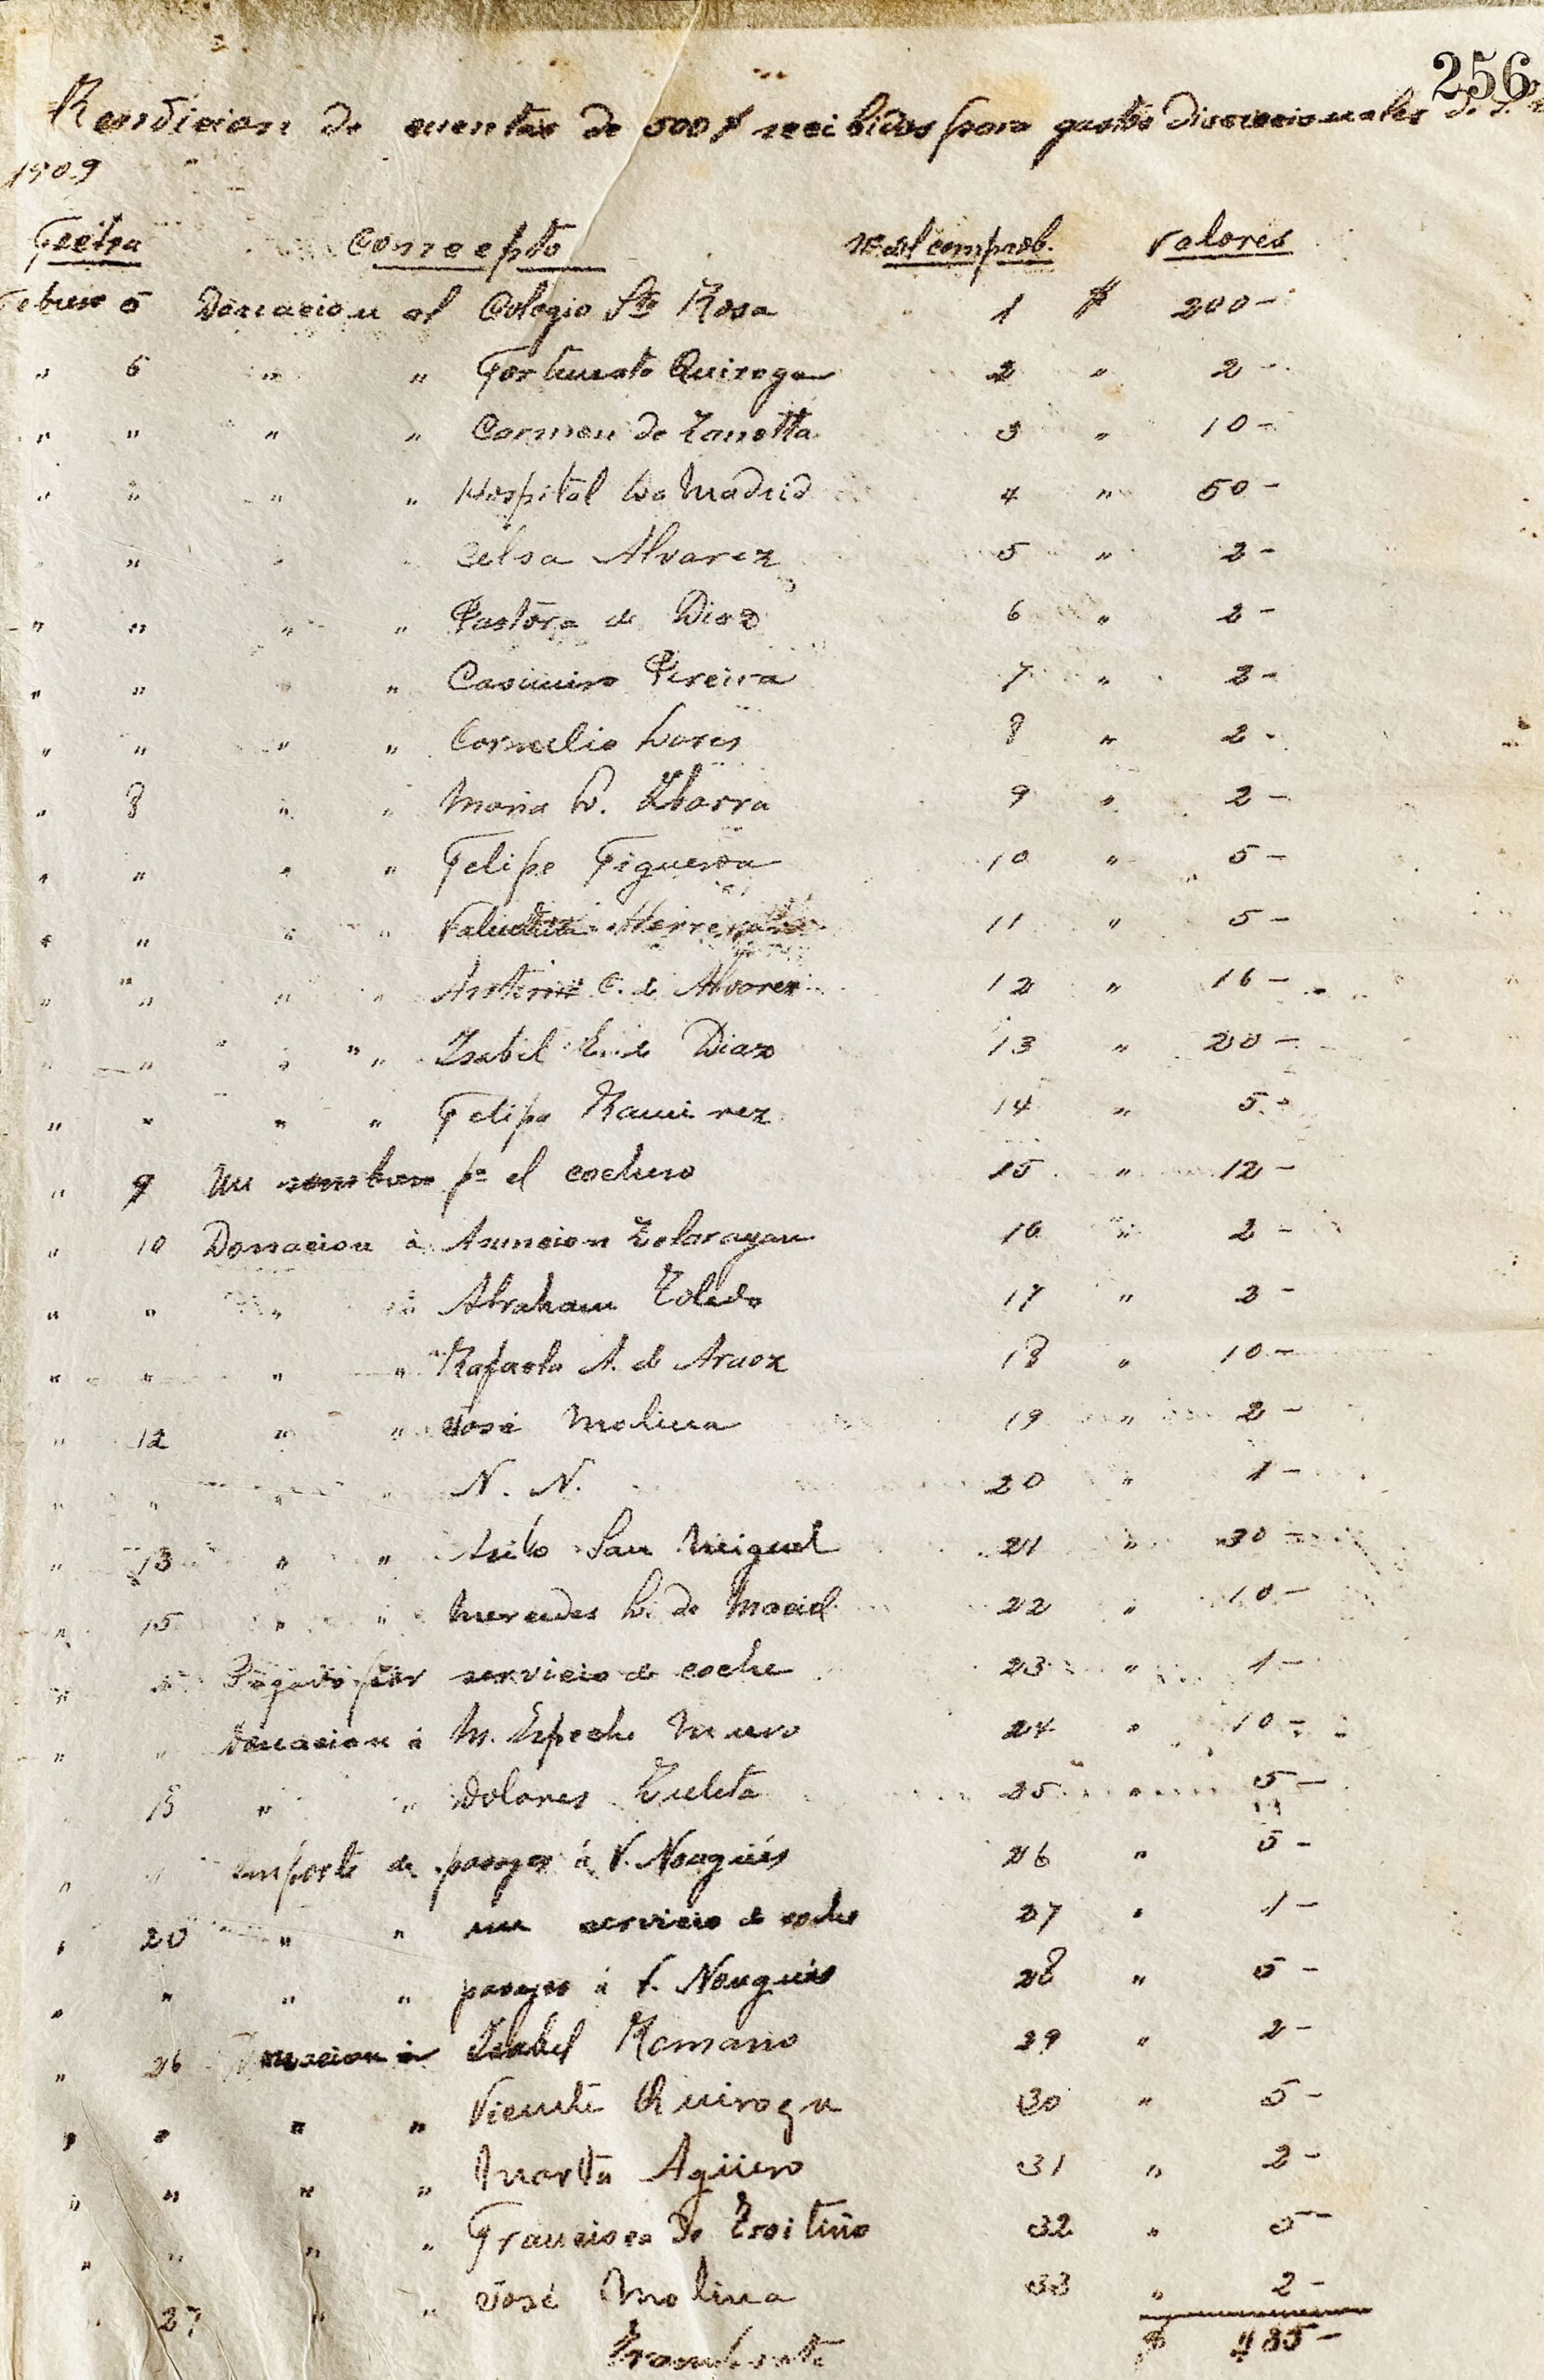 256
Rendicion de cuentas de 500 $ recibidos para gastos discrecionales
1909
Fecha Concepto Nº del comprob. Valores
Febrero 5 Donacion al Colegio Sta Rosa 1 $ 200 -
" 6 " " Fortunato Quiroga 2 " 2 -
" " " " Carmen de Zanotta 3 " 10 -
" " " " Hospital La Madrid 4 " 50 -
" " " " Celsa Alvarez 5 " 2 -
" " " " Pastora de Diaz 6 " 2 -
" " " " Casimiro Pereira 7 " 2 -
" " " " Cornelio 8 " 2 -
" 8 " " Maria L. Ybarra 9 " 2 -
" " " " Felipe Figueroa 10 " 5 -
" " " " Herrera 11 " 5 -
" " " " C. de Alvarez 12 " 16 -
" " " " Isabel de Diaz 13 " 20 -
" " " " Felipe Ramirez 14 " 5 -
" 9 Un sombrero pa el cochero 15 " 12 -
" 10 Donacion à Asuncion Zelarayan 16 " 2 -
" " " " Abraham Toledo 17 " 2 -
" " " " Rafaela A. de Araoz 18 " 10 -
" 12 " " José Molina 19 " 2 -
" " " " N. N. 20 " 1 -
" 13 " " Asilo San Miguel 21 " 30 -
" 15 " " Mercedes L. de Maciel 22 " 10 -
" " Pagado por servicio de coche 23 " 1 -
" " Donacion à M. Espeche Muro 24 " 10 -
" " " Dolores Zuleta 25 " 5 -
" " Importe de pasajes à V. Nougués 26 " 5 -
" 20 " " un servicio de coche 27 " 1 -
" " " " pasajes à V. Nougués 28 " 5 -
" 26 Donacion à Isabel Romano 29 " 2 -
" " " " Vicente Quiroga 30 " 5 -
" " " " Marta Agüero 31 " 2 -
" " " " Francisca de Troitiño 32 " 5 -
" 27 " " José Molina 33 " 2 -
Transporte $ 435 -